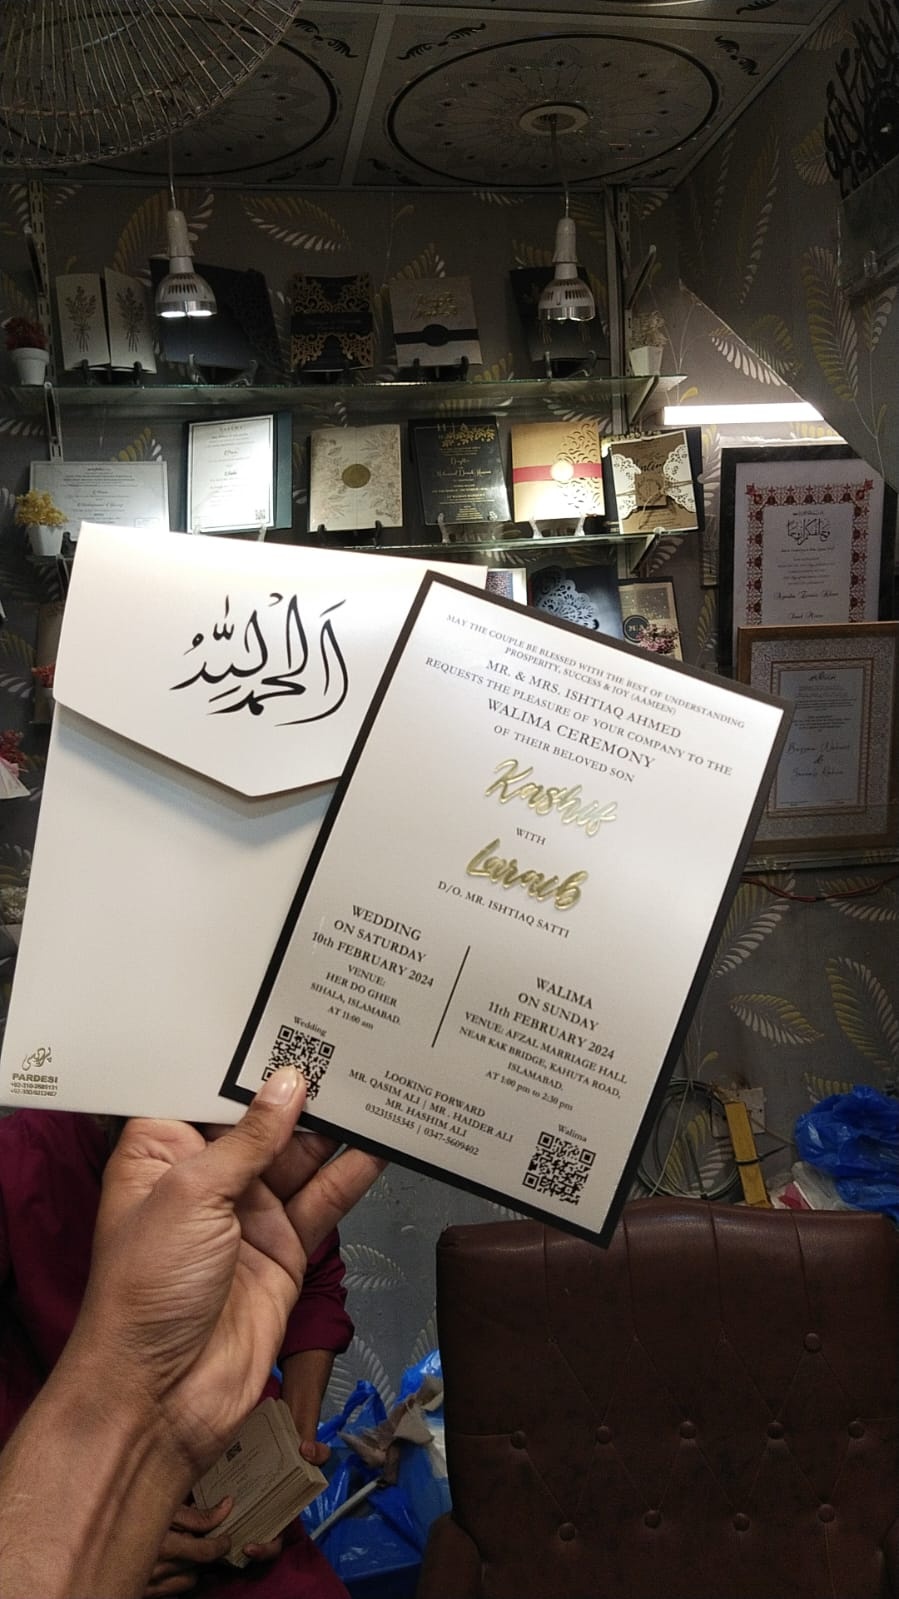 الحمد لله
PARDESI
MAY THE COUPLE BE BLESSED WITH THE BEST OF UNDERSTANDING
PROSPERITY, SUCCESS & JOY (AAMEEN)
MR. & MRS. ISHTIAQ AHMED
REQUESTS THE PLEASURE OF YOUR COMPANY TO THE
WALIMA CEREMONY
OF THEIR BELOVED SON
Kashif
WITH
Laraib
D/O. MR. ISHTIAQ SATTI
WEDDING
ON SATURDAY
10th FEBRUARY 2024
VENUE:
HER DO GHER
SIHALA, ISLAMABAD.
AT 11:00 am
Wedding
WALIMA
ON SUNDAY
11th FEBRUARY 2024
VENUE: AFZAL MARRIAGE HALL
NEAR KAK BRIDGE, KAHUTA ROAD,
ISLAMABAD.
AT 1:00 pm to 2:30 pm
Walima
LOOKING FORWARD
MR. QASIM ALI | MR. HAIDER ALI
MR. HASHIM ALI
03231515345 | 0347-5609402